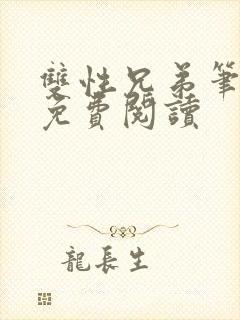 雙性兄弟筆
免費閱讀
龍長生